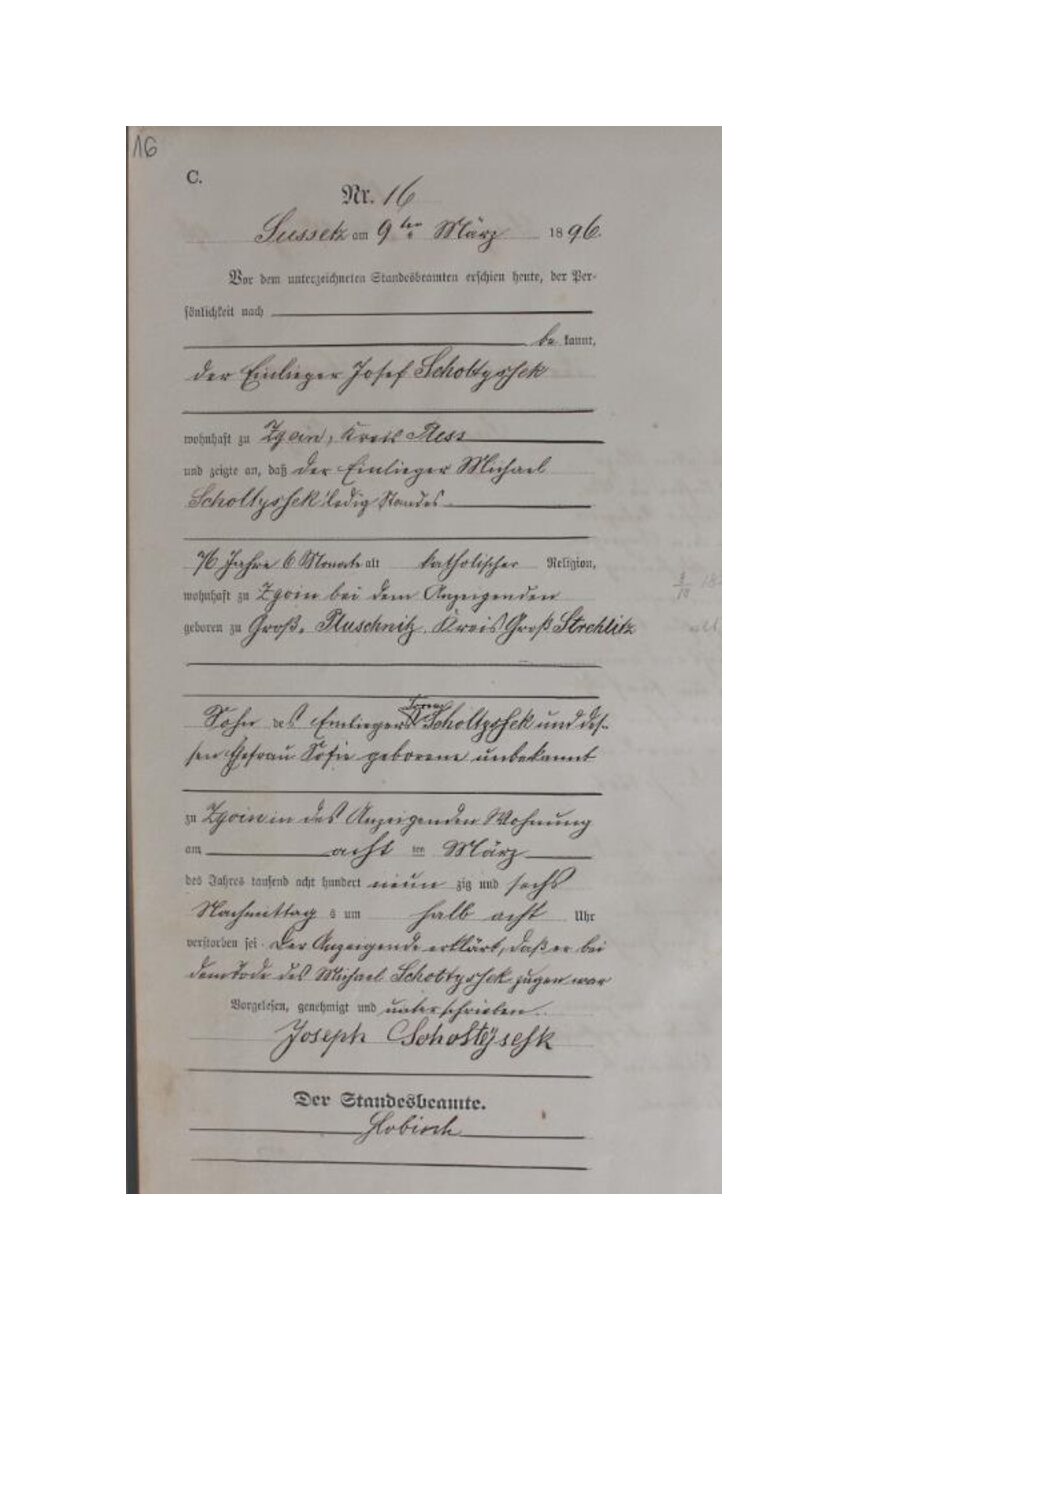 16
C.
Nr. 16
Sussetz am 9ten März 1896.
Vor dem unterzeichneten Standesbeamten erschien heute, der Per-
sönlichkeit nach
be kannt,
der Einlieger Josef Scholtyssek
wohnhaft zu Zgoin, Kreis Pless
und zeigte an, daß der Einlieger Michael
Scholtyssek ledig Standes
76 Jahre 6 Monate alt katholischer Religion,
wohnhaft zu Zgoin bei dem Anzeigenden
geboren zu Groß. Pluschnitz, Kreis Groß Strehlitz
Sohn des Einliegers Scholtyssek und des-
sen Ehefrau Sofie geborene unbekannt
zu Zgoin in des Anzeigenden Wohnung
am acht ten März
des Jahres tausend acht hundert neun zig und sechs
Nachmittag s um halb acht Uhr
verstorben sei. Der Anzeigende erklärt, daß er bei
dem Tode des Michael Scholtyssek zugen war
Vorgelesen, genehmigt und unterschrieben.
Joseph Scholtÿsehk
Der Standesbeamte.